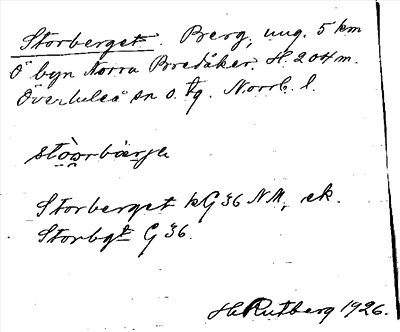 Storberget. Berg, ung. 5 km
Ö byn Norra Bredåker. H. 204 m.
Överluleå sn o. tg. Norrb. l.
stòorbàrje
Storberget kG 36 NM, ek.
Storbgt G 36.
H Rutberg 1926.